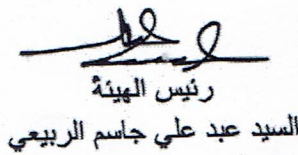 رئيس الهيئة
السيد عبد علي جاسم الربيعي